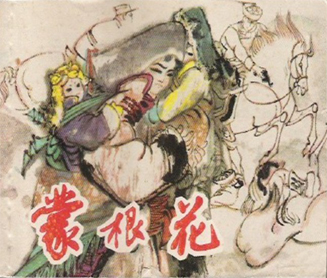 蒙根花